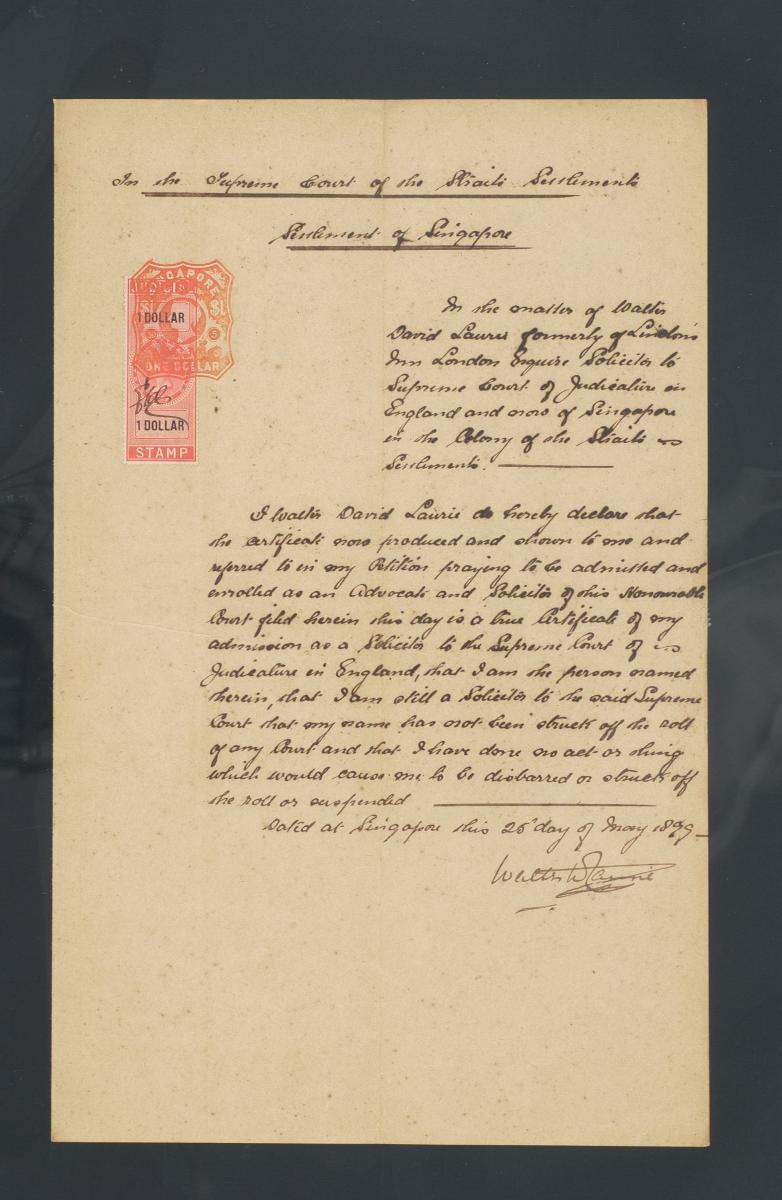 In the Supreme Court of the Straits Settlements
Settlement of Singapore
SINGAPORE
JUDICIAL
$1
1 DOLLAR
ONE DOLLAR
1 DOLLAR
STAMP
In the matter of Walter
David Laurie formerly of Lincoln's
Inn London Esquire Solicitor to
Supreme Court of Judicature in
England and now of Singapore
in the Colony of the Straits
Settlements.
I Walter David Laurie do hereby declare that
the certificate now produced and shown to me and
referred to in my Petition praying to be admitted and
enrolled as an Advocate and Solicitor of this Honourable
Court filed herein this day is a true Certificate of my
admission as a Solicitor to the Supreme Court of
Judicature in England, that I am the person named
therein, that I am still a Solicitor to the said Supreme
Court that my name has not been struck off the roll
of any Court and that I have done no act or thing
which would cause me to be disbarred or struck off
the roll or suspended
Dated at Singapore this 26 day of May 1899
Walter D Laurie